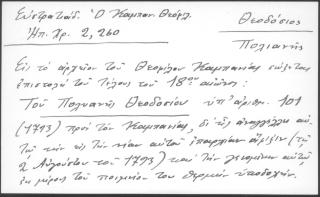 Εὐστρατιάδ. Ὁ Καμπαν. Θεόφιλ.
Ἠπ. Χρ. 2, 260
Θεοδόσιος
Πολιανῆς
Εἰς τὸ ἀρχεῖον τοῦ Θεοφίλου Καμπανίας σώζεται
ἐπιστολὴ τοῦ Τέλους τοῦ 18ου αἰῶνος:
Τοῦ Πολιανῆς Θεοδοσίου ὑπ' ἀριθμ. 101
(1793) πρὸς τὸν Καμπανίας, δι' ἧς ἀναγγέλλει αὐ
τῷ τὴν εἰς τὴν νέαν αὐτοῦ ἐπαρχίαν ἄφιξιν (τῇ
2 Αὐγούστου τοῦ 1793) καὶ τὴν γενομένην αὐτῷ
ἐκ μέρους τοῦ ποιμνίου του θερμὴν ὑποδοχήν.